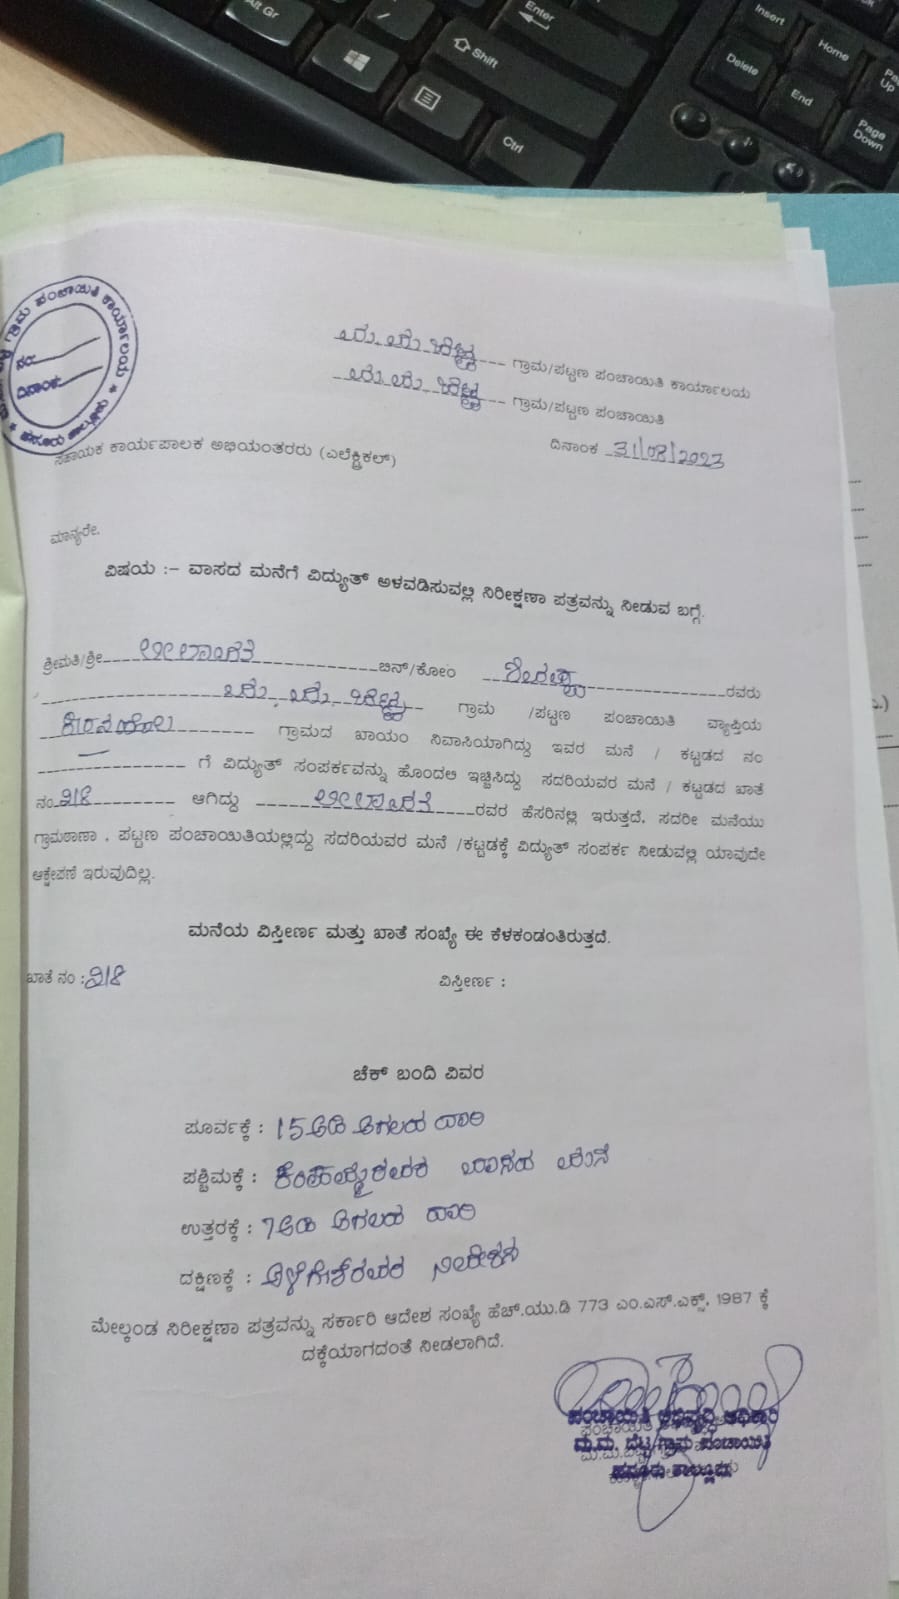 Alt Gr
Enter
Shift
Ctrl
Insert
Home
Page Up
Delete
End
Page Down
ಗ್ರಾಮ ಪಂಚಾಯಿತಿ ಕಾರ್ಯಾಲಯ
ನಂ:
ದಿನಾಂಕ:
ಮ. ಮ. ಬೆಟ್ಟ ಗ್ರಾಮ/ಪಟ್ಟಣ ಪಂಚಾಯಿತಿ ಕಾರ್ಯಾಲಯ
ಮ. ಮ. ಬೆಟ್ಟ ಗ್ರಾಮ/ಪಟ್ಟಣ ಪಂಚಾಯಿತಿ
ದಿನಾಂಕ 31/08/2023
ಸಹಾಯಕ ಕಾರ್ಯಪಾಲಕ ಅಭಿಯಂತರರು (ಎಲೆಕ್ಟ್ರಿಕಲ್)
ಮಾನ್ಯರೇ,
ವಿಷಯ :– ವಾಸದ ಮನೆಗೆ ವಿದ್ಯುತ್ ಅಳವಡಿಸುವಲ್ಲಿ ನಿರೀಕ್ಷಣಾ ಪತ್ರವನ್ನು ನೀಡುವ ಬಗ್ಗೆ.
ಶ್ರೀಮತಿ/ಶ್ರೀ ಲೀಲಾವತಿ ಬಿನ್/ಕೋಂ ರವರು
ಮ. ಮ. ಬೆಟ್ಟ ಗ್ರಾಮ /ಪಟ್ಟಣ ಪಂಚಾಯಿತಿ ವ್ಯಾಪ್ತಿಯ
ಗ್ರಾಮದ ಖಾಯಂ ನಿವಾಸಿಯಾಗಿದ್ದು ಇವರ ಮನೆ / ಕಟ್ಟಡದ ನಂ
ಗೆ ವಿದ್ಯುತ್ ಸಂಪರ್ಕವನ್ನು ಹೊಂದಲು ಇಚ್ಚಿಸಿದ್ದು ಸದರಿಯವರ ಮನೆ / ಕಟ್ಟಡದ ಖಾತೆ
ನಂ 218 ಆಗಿದ್ದು ಲೀಲಾವತಿ ರವರ ಹೆಸರಿನಲ್ಲಿ ಇರುತ್ತದೆ, ಸದರೀ ಮನೆಯು
ಗ್ರಾಮಠಾಣಾ , ಪಟ್ಟಣ ಪಂಚಾಯಿತಿಯಲ್ಲಿದ್ದು ಸದರಿಯವರ ಮನೆ /ಕಟ್ಟಡಕ್ಕೆ ವಿದ್ಯುತ್ ಸಂಪರ್ಕ ನೀಡುವಲ್ಲಿ ಯಾವುದೇ
ಆಕ್ಷೇಪಣೆ ಇರುವುದಿಲ್ಲ.
ಮನೆಯ ವಿಸ್ತೀರ್ಣ ಮತ್ತು ಖಾತೆ ಸಂಖ್ಯೆ ಈ ಕೆಳಕಂಡಂತಿರುತ್ತದೆ.
ಖಾತೆ ನಂ : 218 ವಿಸ್ತೀರ್ಣ :
ಚೆಕ್ ಬಂದಿ ವಿವರ
ಪೂರ್ವಕ್ಕೆ : 15 ಅಡಿ ಅಗಲದ ದಾರಿ
ಪಶ್ಚಿಮಕ್ಕೆ : ಮನೆ
ಉತ್ತರಕ್ಕೆ : 7 ಅಡಿ ಅಗಲದ ದಾರಿ
ದಕ್ಷಿಣಕ್ಕೆ :
ಮೇಲ್ಕಂಡ ನಿರೀಕ್ಷಣಾ ಪತ್ರವನ್ನು ಸರ್ಕಾರಿ ಆದೇಶ ಸಂಖ್ಯೆ ಹೆಚ್.ಯು.ಡಿ 773 ಎಂ.ಎಸ್.ಎಕ್ಸ್, 1987 ಕ್ಕೆ
ದಕ್ಕೆಯಾಗದಂತೆ ನೀಡಲಾಗಿದೆ.
ಪಂಚಾಯಿತಿ ಅಭಿವೃದ್ಧಿ ಅಧಿಕಾರಿ
ಮ.ಮ. ಬೆಟ್ಟ ಗ್ರಾಮ ಪಂಚಾಯಿತಿ
ಹನೂರು ತಾಲ್ಲೂಕು